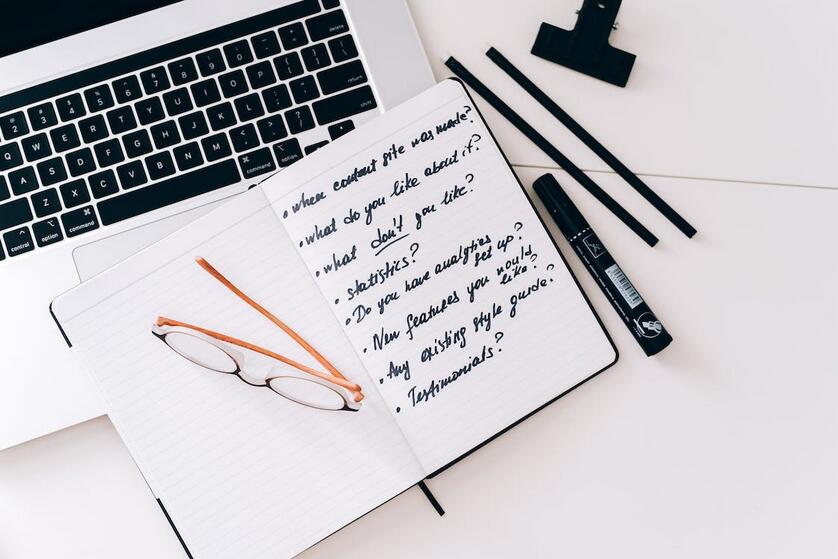 delete
2 3 4 5 6 7 8 9 0
Q W E R T Y U I O P
return
A S D F G H J K L
Z X C V B N M
control option command
command option
• when content site was made?
• what do you like about it?
• what don't you like?
• statistics?
• Do you have analytics
set up?
• New features you would
like?
• Any existing style guide?
• Testimonials?